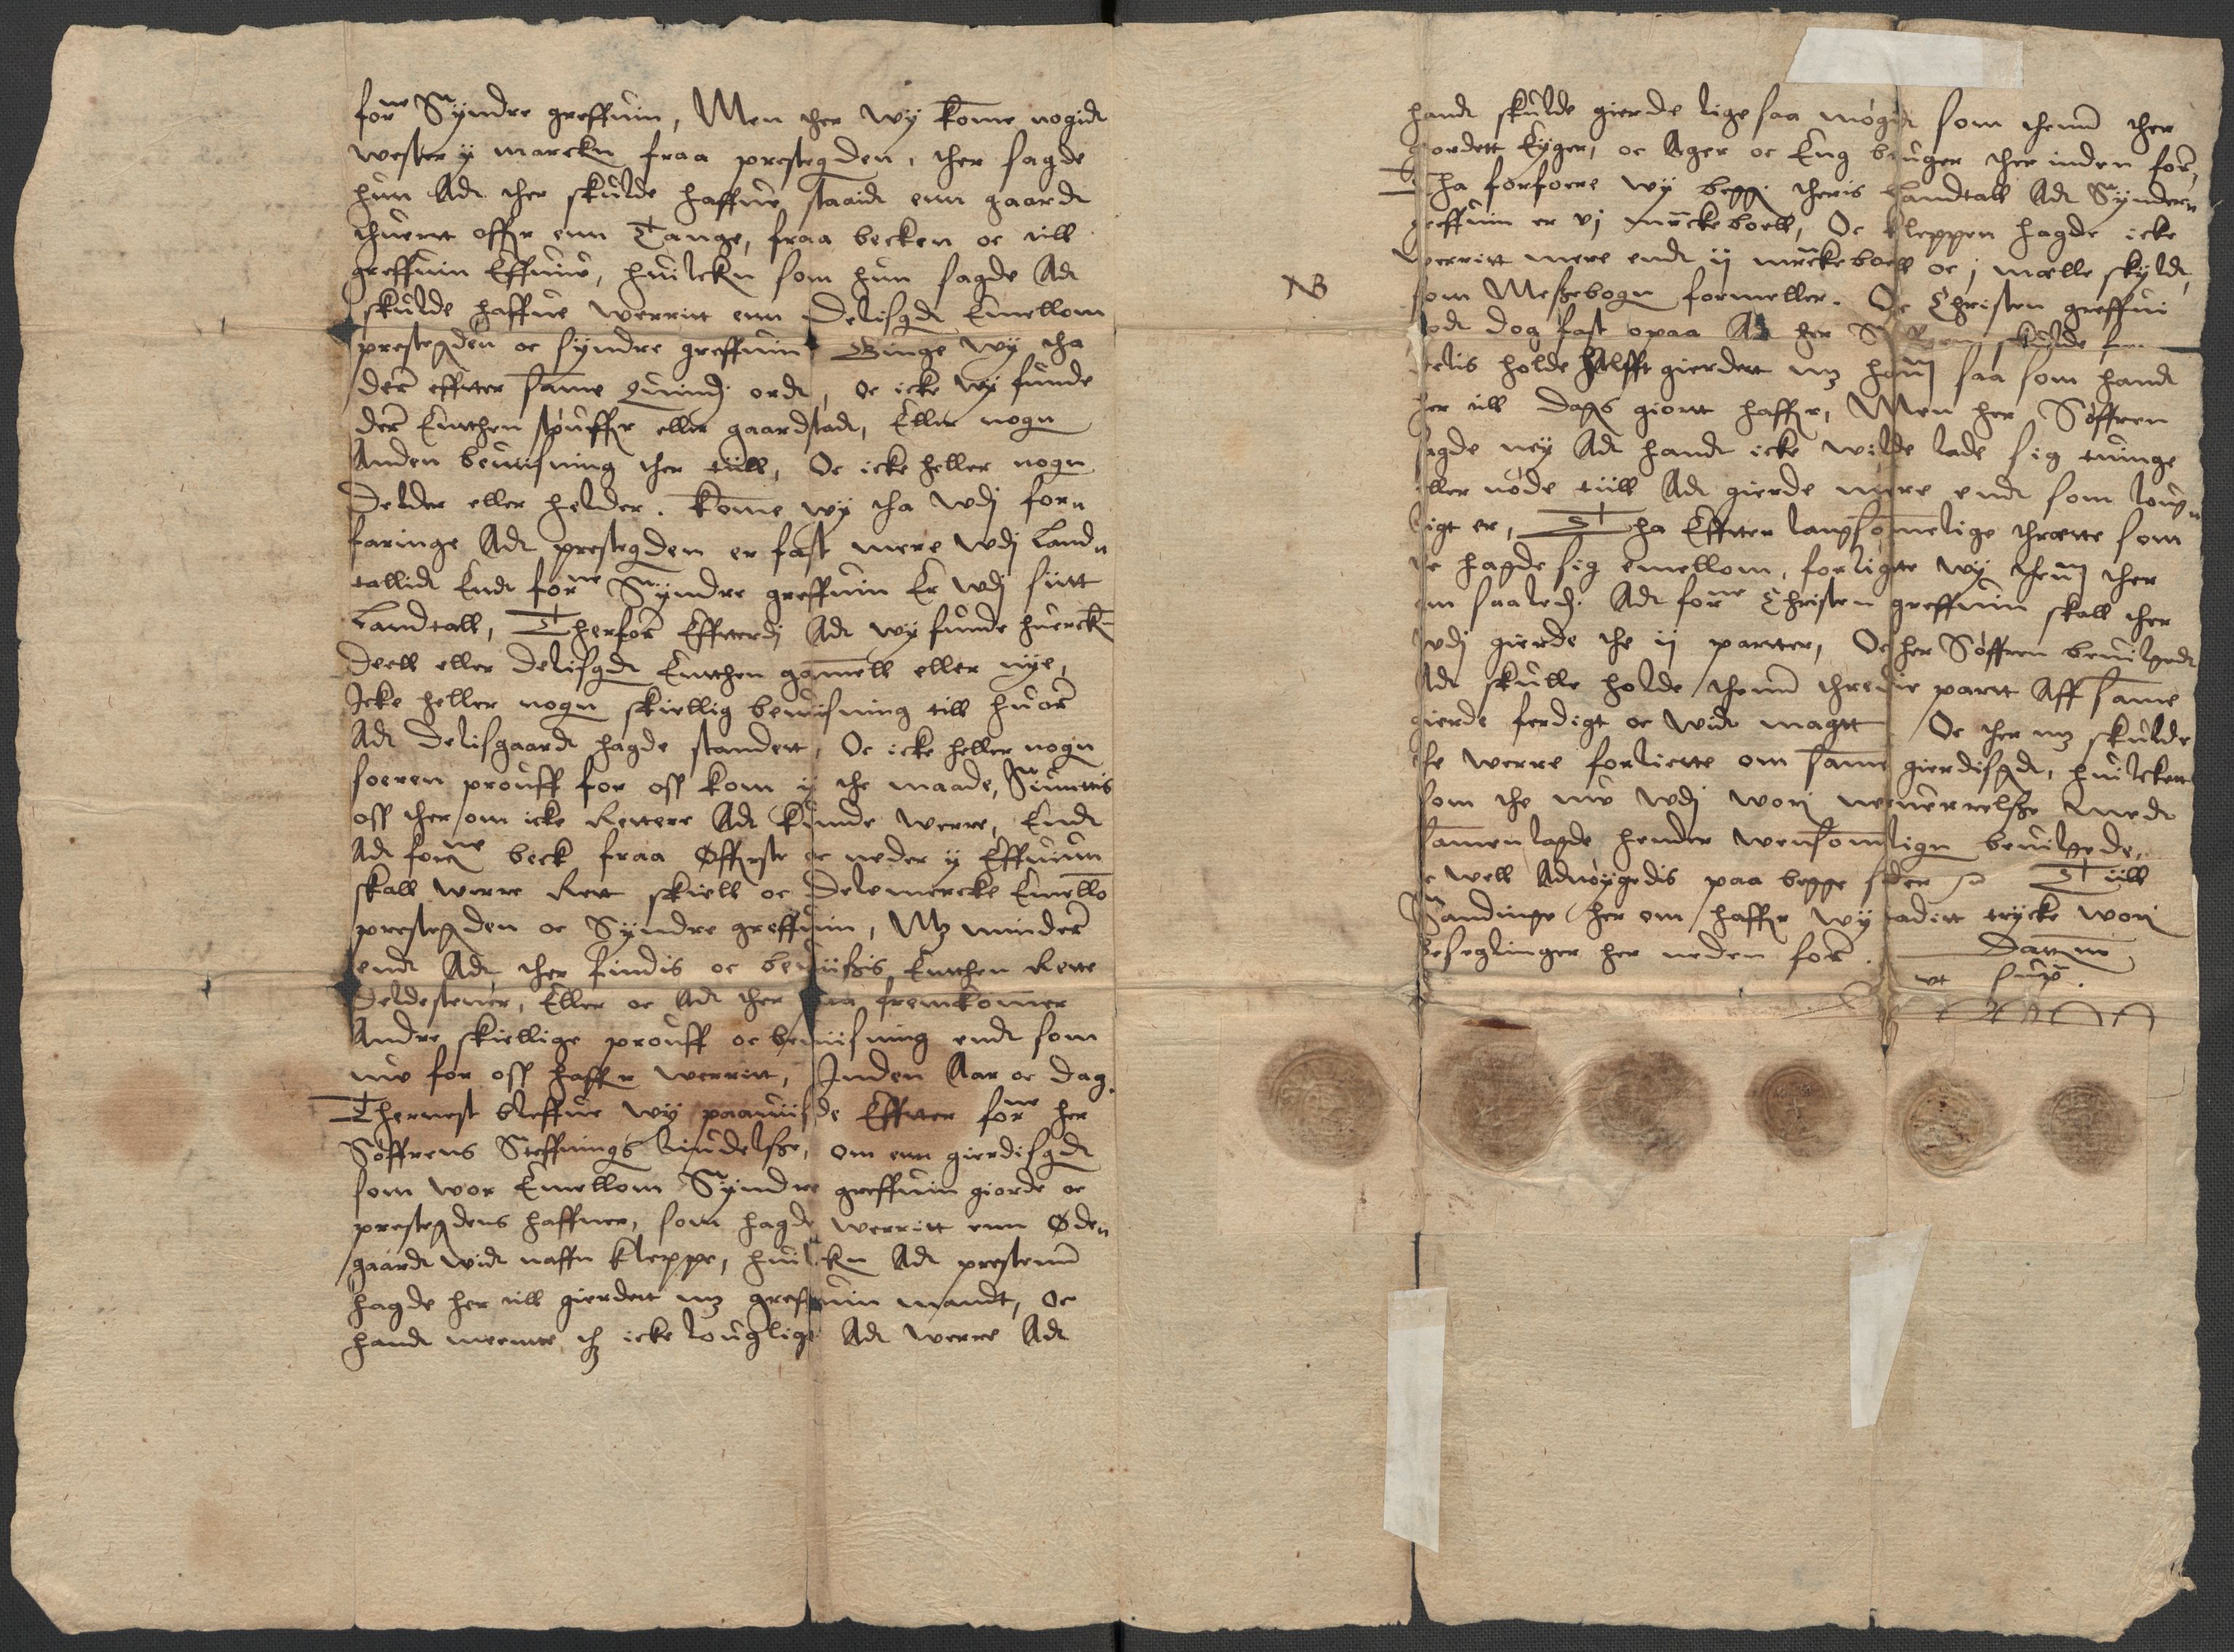 forne Syndre greffuin, Men ther wy kome nogidt
wester y marcken fraa prestegden, ther sagde
hun Adt ther skulde haffue staaid enn gaardt
thuertt offr enn Tange, fraa becken oc till
greffuin Effuiw, huilcken som hun sagde Adt
skulde haffue werritt enn Delisgdt Emellom
prestegden oc syndre greffuin Ginge wy tha
der effter same quindj ordt, oc icke wy funde
der Entthen stouffr eller gaardstadt, Eller nogn
Anden beuisning ther till, Oc icke heller nogn
Delder eller helder. Kome wy tha wdj for
faringe Adt prestegden er fast mere wdj Land
tallidt Endt forne Syndre greffuin Er wdj siitt
Landtall, Therfor Effterdj Adt wy funde huercken
Deell eller Delisgdt Entthen gamell eller nye,
Icke heller nogn skiellig beuisning till huor
Adt Delisgaardt hagde standett, Oc icke heller nogn
soeren prouff for oss kom y the maade, Siuntis
oss ther om icke Rettere Adt kunde werre, Endt
Adt forne beck fraa Øffrste oc neder y Effuiun
skall werre Rett skiell oc Delemercke Emello
prestegden oc Syndre greffuin, Mz minder
endt Adt ther findis oc beuiisis Entthen Rette
Deldestener, Eller oc Adt ther paa fremkommer
Andre skiellige prouff oc beuiisning endt som
nw for oss haffr werritt, Inden Aar oc Dag.
Thernest bleffue wy paauiisde Effter forne her
Søffrens Steffnings liudelsse, om enn gierdisgdt
som wor Emellom Syndre greffuin giorde oc
prestegdens haffner, som hagde werritt enn Øde
gaardt widt naffn kleppe, huilcken Adt prestenn
hagde her till gierdett mz greffuin mandt, Oc
handt meente thz icke louglige Adt werre Adt
handt skulde gierde lige saa mögit som thend ther
Jordett Eyger, oc Ager oc Eng bruger ther inden for,
Tha forfoere wy begge theris Landtall Adt Synder
greffuin er vj mrckeboell, Oc kleppen hagde icke
werritt mere endt ij mrckeboell oc j mælle skyldt,
NB
som Messebogn formeller. Oc Christen greffui
stodt dog fast opaa Adt her Søffren skulde
delis holde halfft gierdett mz ham saa som handt
her till Dags giortt haffr, Men her Söffren
sagde ney Adt handt icke wilde lade sig tuinge
eller nöde till Adt gierde mere endt som loug
ligt er, Tha Effter langsomelige thrætte som
the hagde sig emellom, forligtte wy thenj ther
om saaledj. Adt forne Christen greffuin skall ther
wdj gierde the ij partter, Oc her Söffren beuilgedt
Adt skulle holde thend thredie partt Aff same
gierde ferdigt oc widt magtt Oc ther mz skulde
the werre forliette om same gierdisgdt, huilckett
som the nw wdj worj neruerrelsse medt
samenlagde hender wensomlign beuilgede,
oc well Adnöygedis paa begge sider Till
Sandinge her om haffr wy ladett trycke worj
beseglinger her neden for. Datum
ut sup.